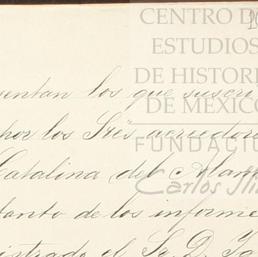 CENTRO D
ESTUDIOS
DE HISTORI
DE MÉXICO
FUNDACI
Carlos Sli
entan los que suscri
por los Sres acreedore
Catalina del Alam
tanto de los informe
istrado el Sr. D. Jo